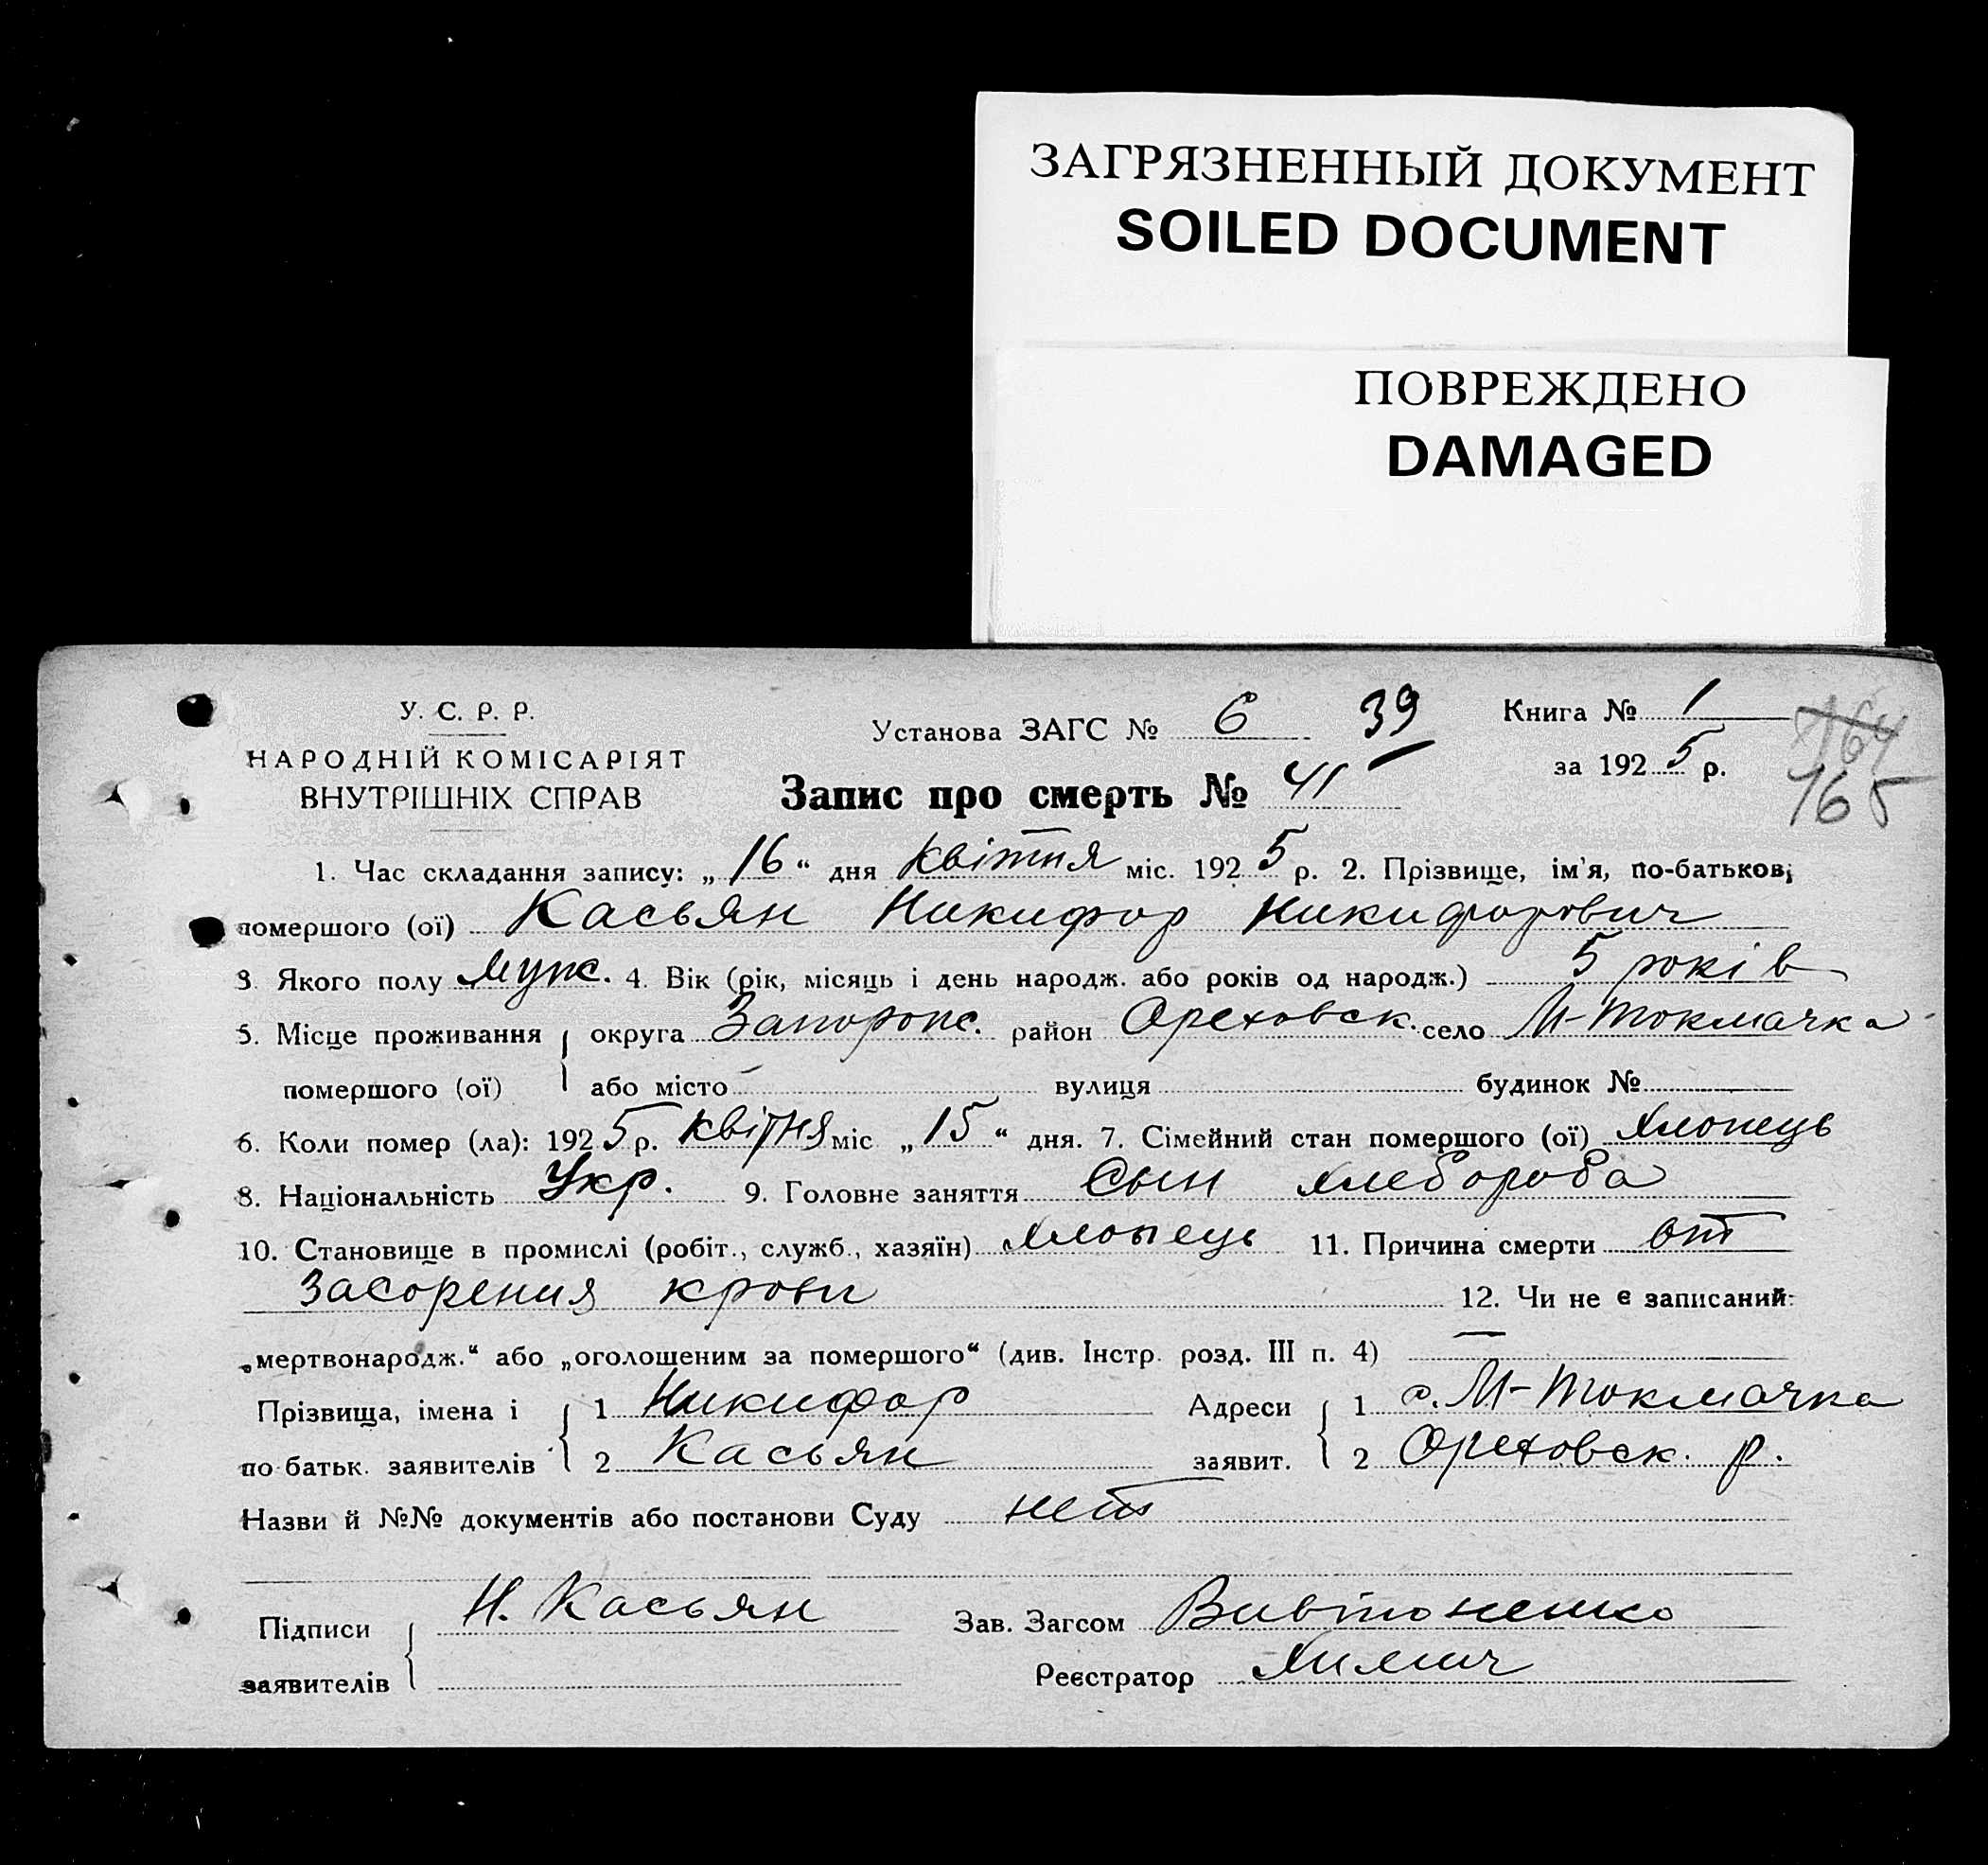 ЗАГРЯЗНЕННЫЙ ДОКУМЕНТ
SOILED DOCUMENT
ПОВРЕЖДЕНО
DAMAGED
У. С. Р. Р.
НАРОДНІЙ КОМІСАРІЯТ
ВНУТРІШНІХ СПРАВ
Установа ЗАГС № 6 39
Запис про смерть № 41
Книга № 1
за 1925 р.
164
165
1. Час складання запису: „16“ дня Квітня міс. 1925 р. 2. Прізвище, ім'я, по-батькові
помершого (ої) Касьян Никифор Никифорович
3. Якого полу муж. 4. Вік (рік, місяць і день народж. або років од народж.) 5 років
5. Місце проживання округа Запорож. район Ореховск. село М-Токмачка
помершого (ої) або місто вулиця будинок №
6. Коли помер (ла): 1925 р. Квітня міс „15“ дня. 7. Сімейний стан помершого (ої) хлопець
8. Національність Укр. 9. Головне заняття Сын хлебороба
10. Становище в промислі (робіт., служб., хазяїн) хлопець 11. Причина смерти от
засорения крови 12. Чи не є записаний:
„мертвонародж.“ або „оголошеним за помершого“ (див. Інстр. розд. III п. 4) —
Прізвища, імена і 1 Никифор Адреси 1 с. М-Токмачка
по батьк. заявителів 2 Касьян заявит. 2 Ореховск. р.
Назви й №№ документів або постанови Суду нет
Підписи Н. Касьян Зав. Загсом
заявителів Реєстратор Химич